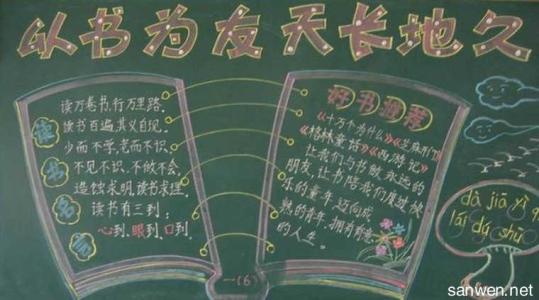 以书为友天长地久
读书名言
读万卷书,行万里路。
读书百遍,其义自见。
少而不学,老而不识。
不见不识,不做不会。
造烛求明,读书求理。
读书有三到:
心到,眼到,口到.
好书推荐
《十万个为什么》《芝麻开门》
《格林童话》《西游记》
让我们与书做永远的
朋友,让书陪我们度过快
乐的童年,迈向成
熟的青年,拥有
的人生。
一(6)
dà jiā yì
lái dú shū
sanwen.net